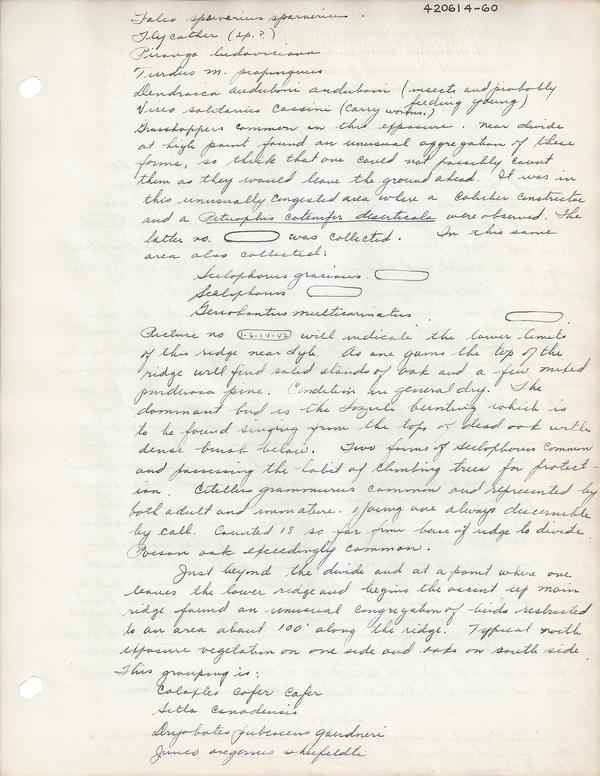 420614-60
Falco sparverius sparverius.
Flycatcher (sp.?)
Piranga ludoviciana
Turdus m. propinquus
Dendroica auduboni auduboni (insects and probably feeding young)
Vireo solitarius cassini (carry worms.)
Grasshoppers common on this exposure. Near divide
at high point found an unusual aggregation of these
forms, so thick that one could not possibly count
them as they would leave the ground ahead. It was in
this unusually congested area where a Coluber constrictor
and a Pituophis catenifer deserticola were observed. The
latter no. was collected. In this same
area also collected:
Sceloporus graciosus.
Scelophorus.
Gerrhonotus multicarinatus
Picture no 1-6-14-42 will indicate the lower limits
of this ridge near Lyle. As one gains the top of the
ridge will find solid stands of oak and a few mixed
ponderosa pine. Condition in general dry. The
dominant bird is the Lazula bunting which is
to be found singing from the tops of dead oak with
dense brush below. Two forms of Scelophorus common
and possessing the habit of climbing trees for protect-
ion. Citellus grammurus common and represented by
both adult and immature. Young one always discernible
by call. Counted 18 so far from base of ridge to divide.
Poison oak exceedingly common.
Just beyond the divide and at a point where one
leaves the lower ridge and begins the ascent up main
ridge found an unusual congregation of birds restricted
to an area about 100' along the ridge. Typical north
exposure vegetation on one side and oaks on south side.
This grouping is:
Colaptes cafer cafer
Sitta canadensis
Dryobates pubescens gairdneri
Junco oreganus shufeldti